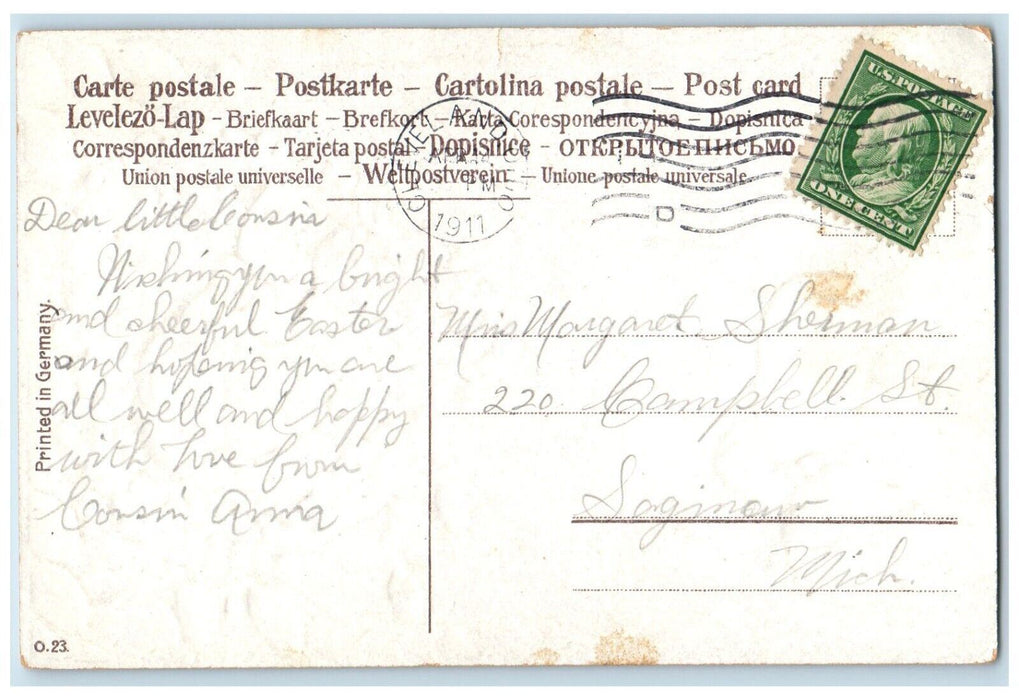 Carte postale – Postkarte – Cartolina postale – Post card
Levelező-Lap - Briefkaart - Brefkort - Karta Corespondencyjna - Dopisnica
Correspondenzkarte - Tarjeta postal - Dopisnice - ОТКРЫТОЕПИСЬМО
Union postale universelle – Weltpostverein – Unione postale universale
1911
U.S. POSTAGE
ONE CENT
Dear little Cousin
Wishing you a bright
and cheerful Easter
and hoping you are
all well and happy
with love from
Cousin Anna
Miss Margaret Sherman
220 Campbell St.
Saginaw
Mich.
Printed in Germany.
O.23.